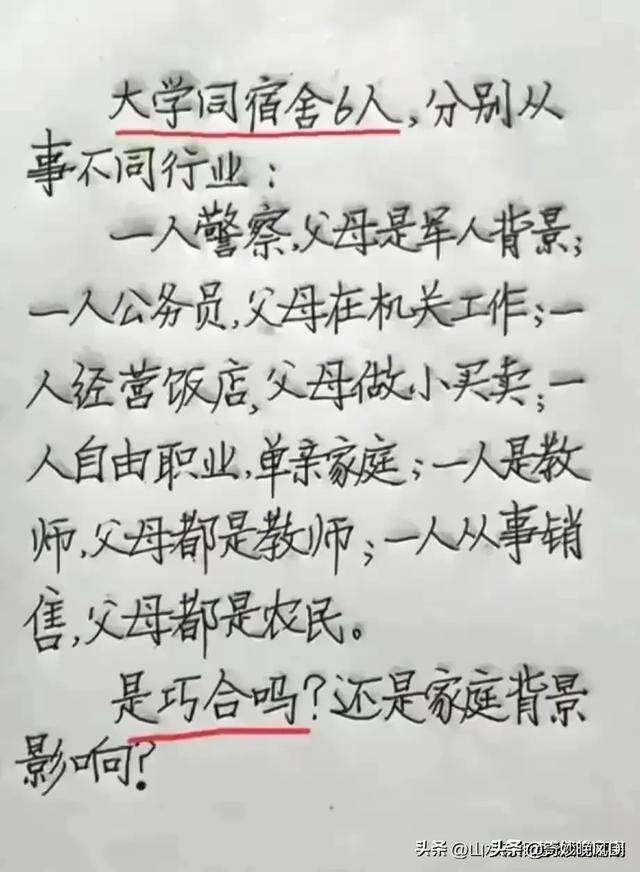 大学同宿舍6人,分别从
事不同行业:
一人警察,父母是军人背景;
一人公务员,父母在机关工作;一
人经营饭店,父母做小买卖;一
人自由职业,单亲家庭;一人是教
师,父母都是教师;一人从事销
售,父母都是农民。
是巧合吗?还是家庭背景
影响?
头条 @山
头条